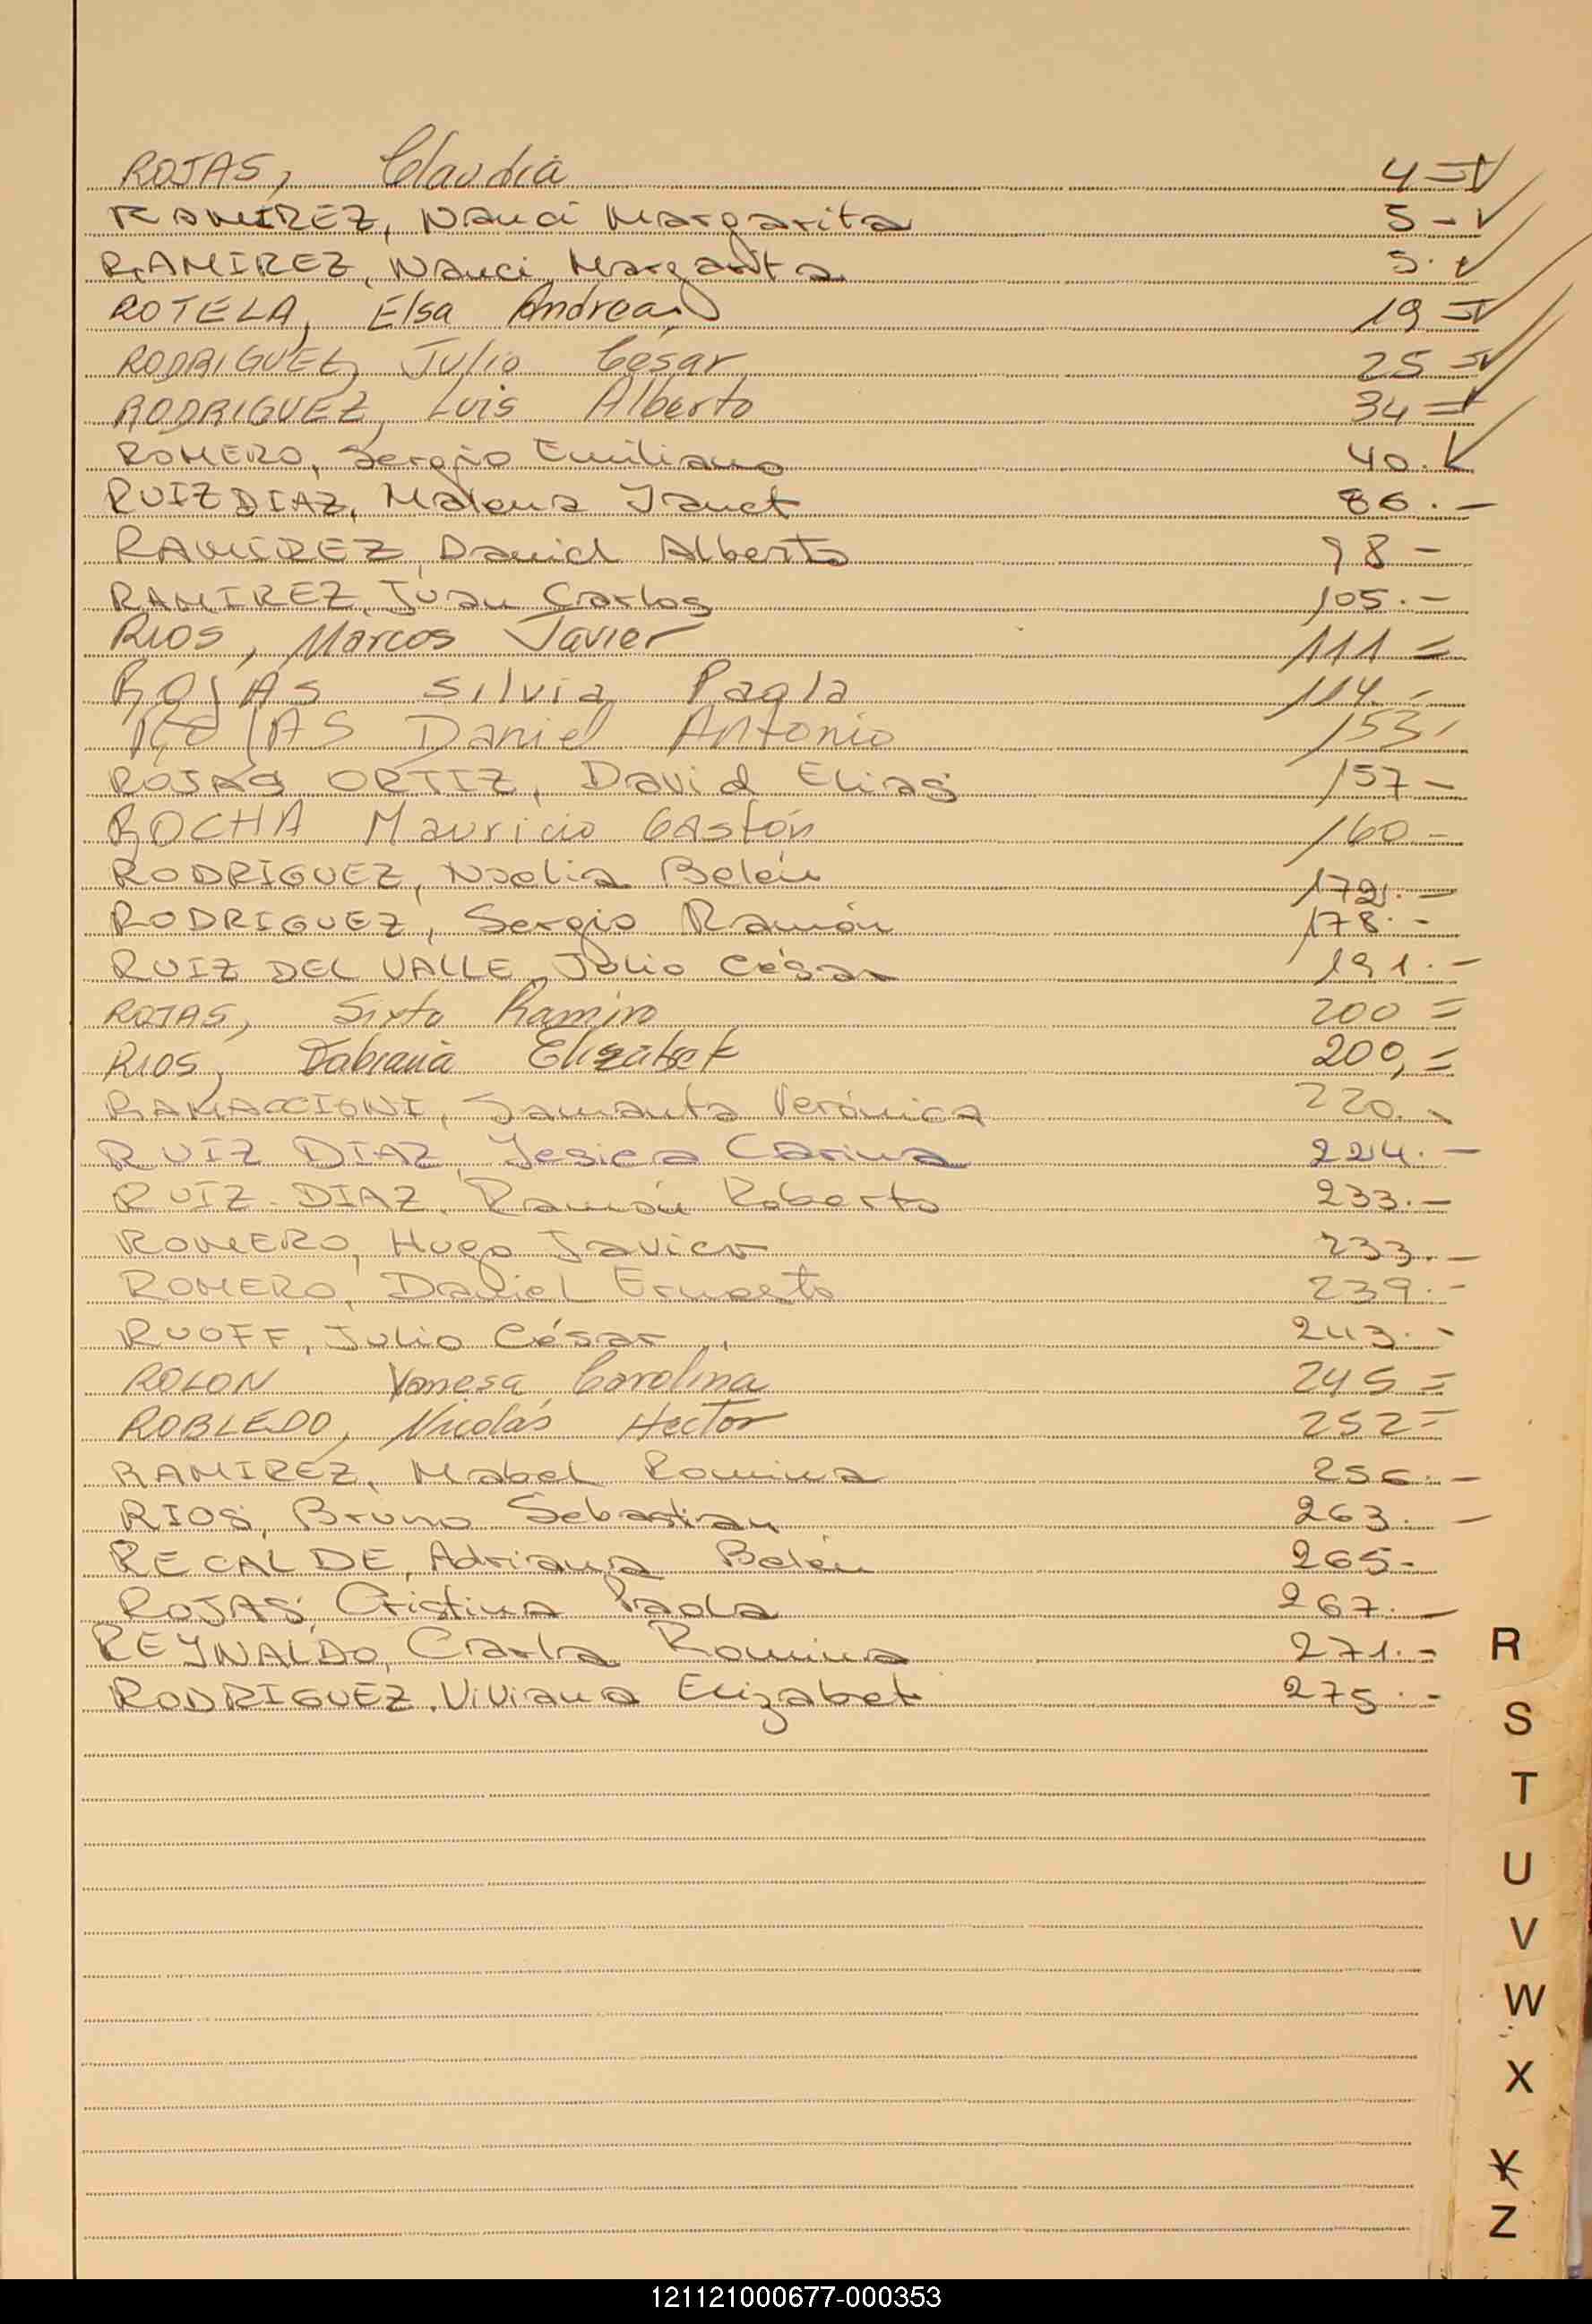 ROJAS, Claudia 4=
RAMÍREZ, Nanci Margarita 5-
RAMIREZ, Nanci Margarita 5.
ROTELA, Elsa Andrea 19=
RODRIGUEZ, Julio César 25=
RODRIGUEZ, Luis Alberto 34=
ROMERO, Sergio Emiliano 40.
RUIZ DIAZ, Malena Janet 86.-
RAMIREZ, Daniel Alberto 98-
RAMIREZ, Juan Carlos 105.-
RIOS, Marcos Javier 111=
ROJAS Silvia Paola 114.-
ROJAS Daniel Antonio 153-
ROJAS ORTIZ, David Elias 157-
ROCHA Mauricio Gastón 160-
RODRÍGUEZ, Noelia Belén 172.-
RODRIGUEZ, Sergio Ramón 178.-
RUIZ DEL VALLE, Julio César 191.-
ROJAS, Sixto Ramiro 200=
RIOS, Fabiana Elizabet 200,=
RAMACCIONI, Samanta Verónica 220.-
RUÍZ DIAZ, Yesica Carina 224.-
RUÍZ-DIAZ, Ramón Roberto 233.-
ROMERO, Hugo Javier 233.-
ROMERO, Daniel Ernesto 239.-
RUOFF, Julio César 243.-
ROLON Vanesa Carolina 245=
ROBLEDO, Nicolás Hector 252=
RAMIREZ, Mabel Romina 256.-
RIOS, Bruno Sebastian 263.-
RECALDE, Adriana Belén 265-
ROJAS, Cristina Paola 267.-
REYNALDO, Carla Romina 271.-
RODRIGUEZ, Viviana Elizabet 275.-
R
S
T
U
V
W
X
Y
Z
121121000677-000353